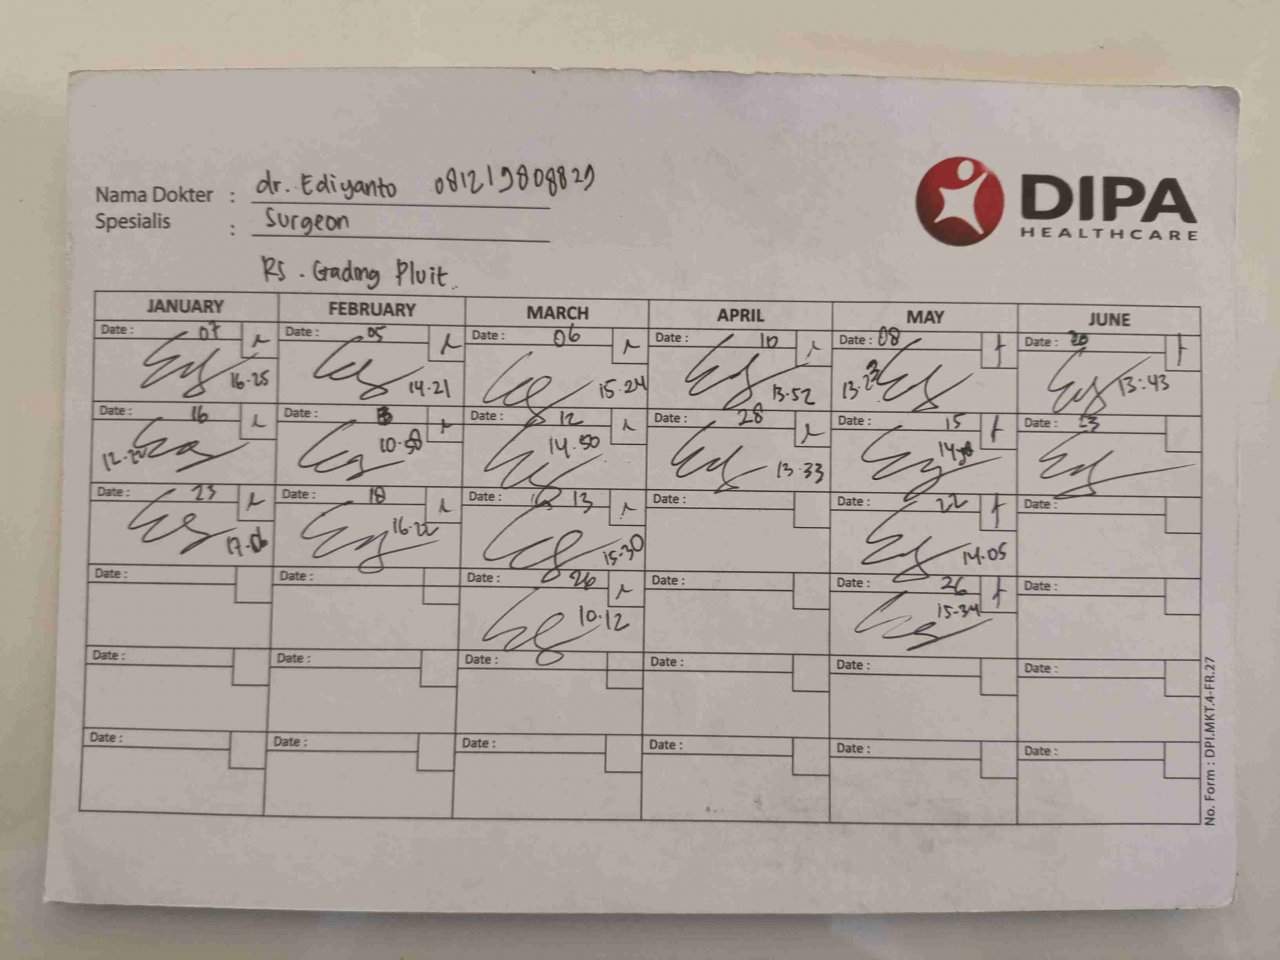 dr. Ediyanto 081219808829
Nama Dokter :
Spesialis : Surgeon
DIPA
HEALTHCARE
RS. Gading Pluit
JANUARY FEBRUARY MARCH APRIL MAY JUNE
Date : 07 Date : 05 Date : 06 Date : 10 Date : 08 Date : 20
16.25 14.21 15.24 13.52 13.23 13:43
Date : 16 Date : 13 Date : 12 Date : 28 Date : 15 Date : 23
10.58 14.50 13.33
Date : 23 Date : 18 Date : 13 Date : Date : 22 Date :
17.06 16.22 15.30 14.05
Date : Date : Date : 26 Date : Date : 26 Date :
10.12 15.34
Date : Date : Date : Date : Date : Date :
Date : Date : Date : Date : Date : Date :
No. Form : DPI.MKT.4-FR.27